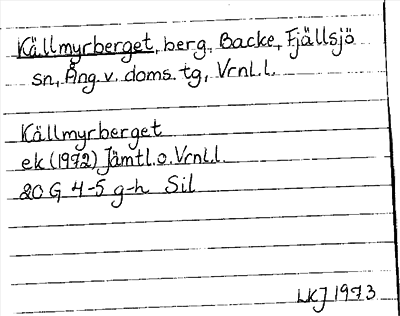 Källmyrberget, berg, Backe, Fjällsjö
sn, Ång. v. doms. tg, Vrnl.l.
Källmyrberget
ek (1972) Jämtl. o. Vrnl.l.
20 G 4-5 g-h Sil
LKJ 1973